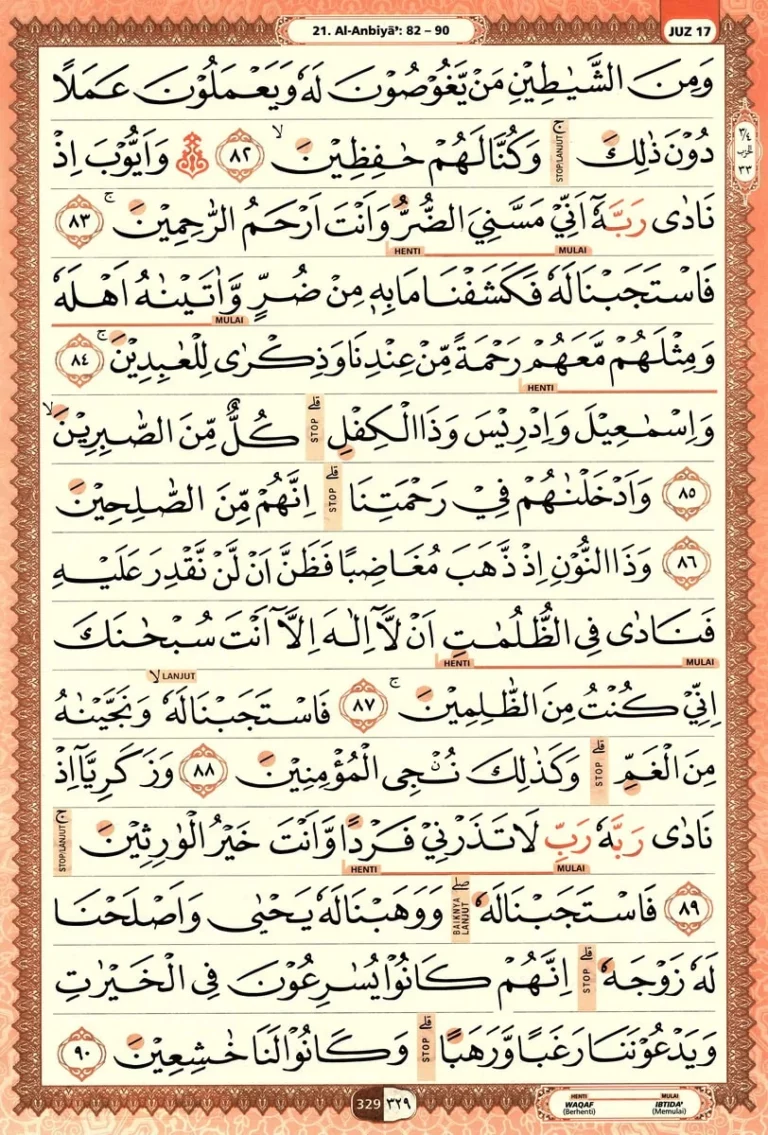 21. Al-Anbiyā': 82 – 90
JUZ 17
وَمِنَ الشَّيٰطِيْنِ مَنْ يَّغُوْصُوْنَ لَهٗ وَيَعْمَلُوْنَ عَمَلًا
دُوْنَ ذٰلِكَۚ STOP/LANJUT وَكُنَّا لَهُمْ حٰفِظِيْنَۙ ٨٢ وَاَيُّوْبَ اِذْ
٣/٤ الحزب ٣٣
نَادٰى رَبَّهٗٓ اَنِّيْ مَسَّنِيَ الضُّرُّ وَاَنْتَ اَرْحَمُ الرّٰحِمِيْنَۚ ٨٣
MULAI HENTI
فَاسْتَجَبْنَا لَهٗ فَكَشَفْنَا مَا بِهٖ مِنْ ضُرٍّ وَّاٰتَيْنٰهُ اَهْلَهٗ
MULAI
وَمِثْلَهُمْ مَّعَهُمْ رَحْمَةً مِّنْ عِنْدِنَا وَذِكْرٰى لِلْعٰبِدِيْنَۚ ٨٤
HENTI
وَاِسْمٰعِيْلَ وَاِدْرِيْسَ وَذَا الْكِفْلِۗ STOP كُلٌّ مِّنَ الصّٰبِرِيْنَۙ
٨٥ وَاَدْخَلْنٰهُمْ فِيْ رَحْمَتِنَاۗ STOP اِنَّهُمْ مِّنَ الصّٰلِحِيْنَ
٨٦ وَذَا النُّوْنِ اِذْ ذَّهَبَ مُغَاضِبًا فَظَنَّ اَنْ لَّنْ نَّقْدِرَ عَلَيْهِ
فَنَادٰى فِى الظُّلُمٰتِ اَنْ لَّآ اِلٰهَ اِلَّآ اَنْتَ سُبْحٰنَكَ
MULAI HENTI
LANJUT
اِنِّيْ كُنْتُ مِنَ الظّٰلِمِيْنَۚ ٨٧ فَاسْتَجَبْنَا لَهٗۙ وَنَجَّيْنٰهُ
مِنَ الْغَمِّۗ STOP وَكَذٰلِكَ نُـْۨجِى الْمُؤْمِنِيْنَ ٨٨ وَزَكَرِيَّآ اِذْ
نَادٰى رَبَّهٗ رَبِّ لَا تَذَرْنِيْ فَرْدًا وَّاَنْتَ خَيْرُ الْوٰرِثِيْنَۚ STOP/LANJUT
MULAI HENTI
٨٩ فَاسْتَجَبْنَا لَهٗۖ BAIKNYA LANJUT وَوَهَبْنَا لَهٗ يَحْيٰى وَاَصْلَحْنَا
لَهٗ زَوْجَهٗۗ STOP اِنَّهُمْ كَانُوْا يُسٰرِعُوْنَ فِى الْخَيْرٰتِ
وَيَدْعُوْنَنَا رَغَبًا وَّرَهَبًاۗ STOP وَكَانُوْا لَنَا خٰشِعِيْنَ ٩٠
329 ٣٢٩
HENTI MULAI
WAQAF IBTIDA'
(Berhenti) (Memulai)